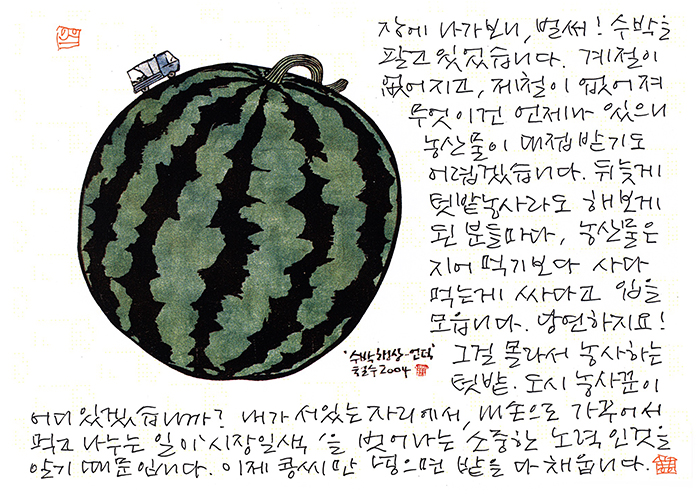 장에 나가보니, 벌써! 수박을
팔고 있었습니다. 계절이
없어지고, 제철이 없어져
무엇이건 언제나 있으니
농산물이 대접받기도
어렵겠습니다. 뒤늦게
텃밭농사라도 해보게
된 분들마다, 농산물은
지어 먹기보다 사다
먹는게 싸다고 입을
모읍니다. 당연하지요!
그걸 몰라서 농사하는
텃밭·도시 농사꾼이
어디 있겠습니까? 내가 서있는 자리에서, 내손으로 가꾸어서
먹고 나누는 일이 '시장일색'을 벗어나는 소중한 노력인것을
알기 때문입니다. 이제 콩씨만 넣으면 밭을 다 채웁니다.
'수박행상-언덕'
철수 2004